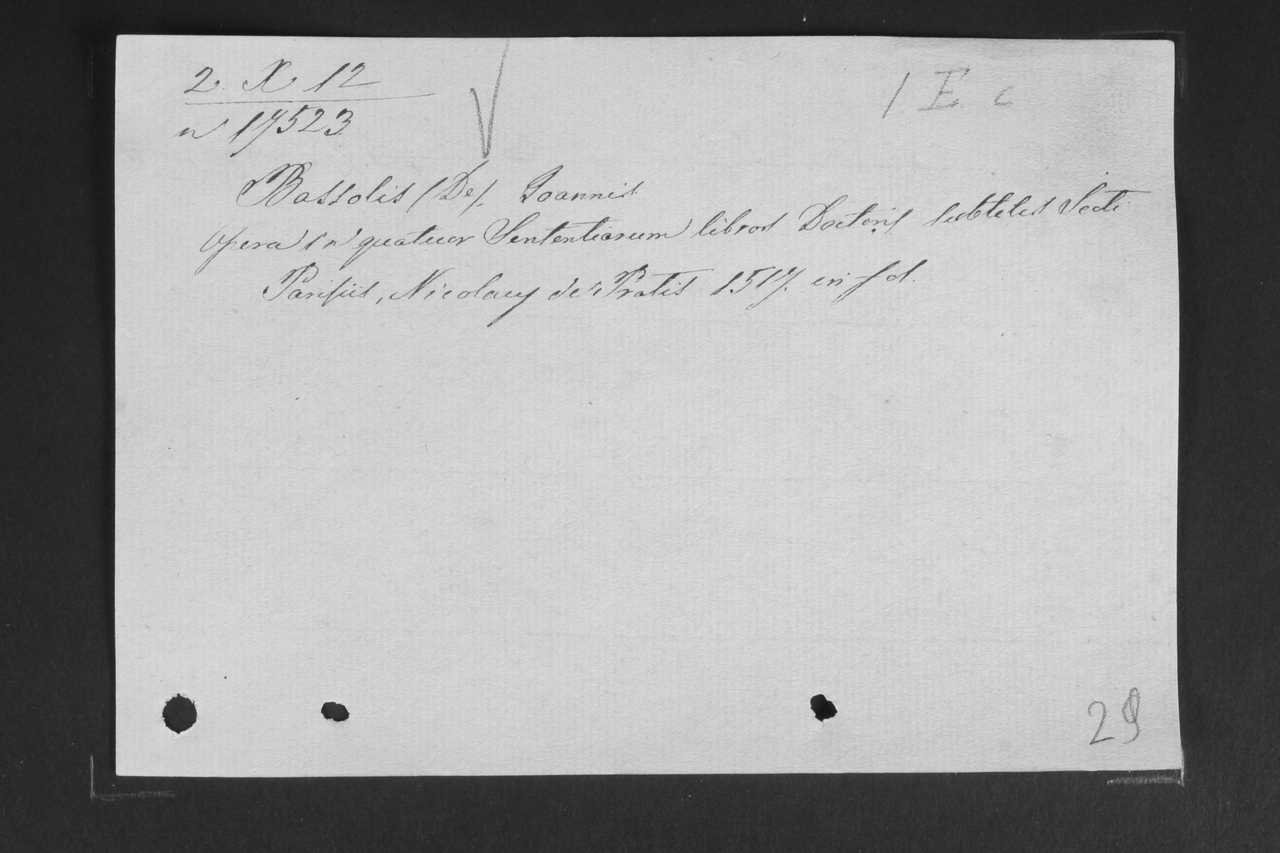 2. X 12
1 E c
n 17523
Bassolis (De). Joannis
Opera in quatuor Sententiarum libros Doctoris subtilis Scoti
Parisiis, Nicolaus de Pratis 1517. in fol.
29